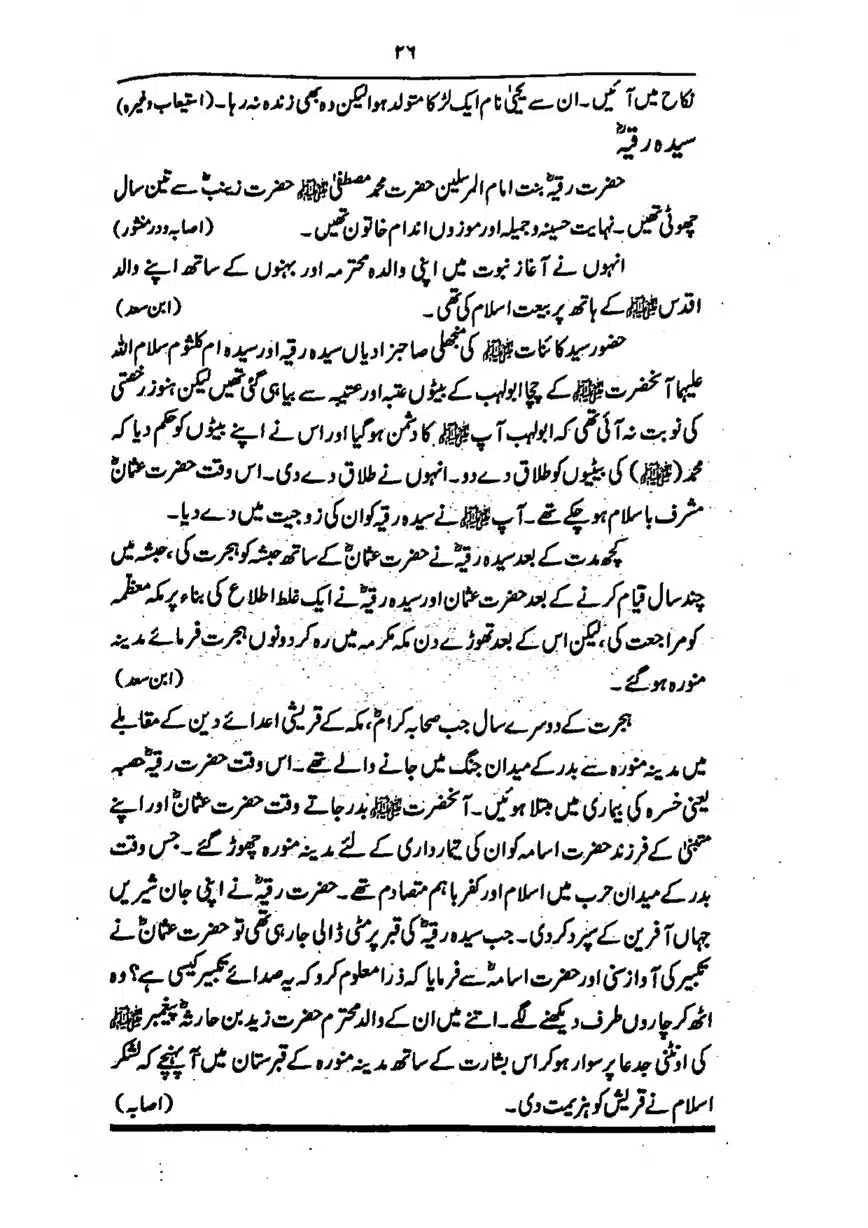 ۲۶
نکاح میں آئیں۔ ان سے یحییٰ نام ایک لڑکا متولد ہوا لیکن وہ بھی زندہ نہ رہا۔ (استیعاب وغیرہ)
سیدہ رقیہؓ
حضرت رقیہؓ بنت امام المرسلین حضرت محمد مصطفیٰ ﷺ حضرت زینبؓ سے تین سال
چھوٹی تھیں۔ نہایت حسینہ و جمیلہ اور موزوں اندام خاتون تھیں۔ (اصابہ ودر منثور)
انہوں نے آغاز نبوت میں اپنی والدہ محترمہ اور بہنوں کے ساتھ اپنے والد
اقدس ﷺ کے ہاتھ پر بیعت اسلام کی تھی۔ (ابن سعد)
حضور سید کائنات ﷺ کی منجھلی صاحبزادیاں سیدہ رقیہ اور سیدہ ام کلثوم سلام اللہ
علیہا آنحضرت ﷺ کے چچا ابولہب کے بیٹوں عتبہ اور عتیبہ سے بیاہی گئی تھیں لیکن ہنوز رخصتی
کی نوبت نہ آئی تھی کہ ابولہب آپ ﷺ کا دشمن ہو گیا اور اس نے اپنے بیٹوں کو حکم دیا کہ
محمد (ﷺ) کی بیٹیوں کو طلاق دے دو۔ انہوں نے طلاق دے دی۔ اس وقت حضرت عثمانؓ
مشرف باسلام ہو چکے تھے۔ آپ ﷺ نے سیدہ رقیہ کو ان کی زوجیت میں دے دیا۔
کچھ مدت کے بعد سیدہ رقیہؓ نے حضرت عثمانؓ کے ساتھ حبشہ کو ہجرت کی، حبشہ میں
چند سال قیام کرنے کے بعد حضرت عثمان اور سیدہ رقیہؓ نے ایک غلط اطلاع کی بناء پر مکہ معظمہ
کو مراجعت کی، لیکن اس کے بعد تھوڑے دن مکہ مکرمہ میں رہ کر دونوں ہجرت فرمائے مدینہ
منورہ ہو گئے۔ (ابن سعد)
ہجرت کے دوسرے سال جب صحابہ کرامؓ، مکہ کے قریشی اعدائے دین کے مقابلے
میں مدینہ منورہ سے بدر کے میدان جنگ میں جانے والے تھے۔ اس وقت حضرت رقیہؓ حصبہ
یعنی خسرہ کی بیماری میں مبتلا ہوئیں۔ آنحضرت ﷺ بدر جاتے وقت حضرت عثمانؓ اور اپنے
متبنیٰ کے فرزند حضرت اسامہ کو ان کی تیمارداری کے لئے مدینہ منورہ چھوڑ گئے۔ جس وقت
بدر کے میدان حرب میں اسلام اور کفر باہم متصادم تھے۔ حضرت رقیہؓ نے اپنی جان شیریں
جہاں آفرین کے سپرد کر دی۔ جب سیدہ رقیہؓ کی قبر پر مٹی ڈالی جا رہی تھی تو حضرت عثمانؓ نے
تکبیر کی آواز سنی اور حضرت اسامہؓ سے فرمایا کہ ذرا معلوم کرو کہ یہ صدائے تکبیر کیسی ہے؟ وہ
اٹھ کر چاروں طرف دیکھنے لگے۔ اتنے میں ان کے والد محترم حضرت زید بن حارثہؓ پیغمبر ﷺ
کی اونٹنی جدعا پر سوار ہو کر اس بشارت کے ساتھ مدینہ منورہ کے قبرستان میں آ پہنچے کہ لشکر
اسلام نے قریش کو ہزیمت دی۔ (اصابہ)